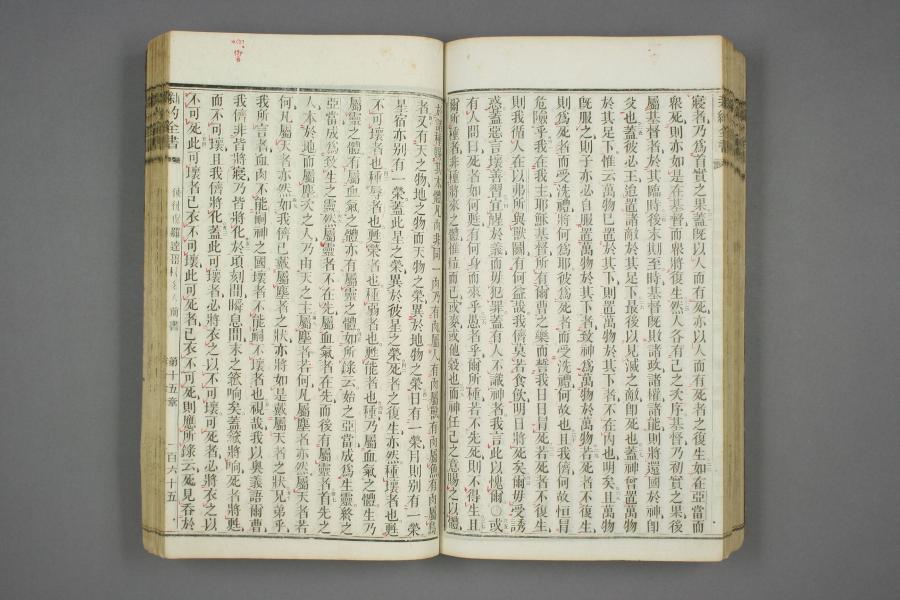 寢者乃為首實之果蓋旣以人而有死亦以人而有死者之復生如在亞當而
衆死則亦如是在基督而衆將復生然人各有己之次序基督乃初實之果後
屬基督者於其臨時後末期至時基督旣敗諸政諸權諸能則將還國於神即
父也蓋彼必王迨置諸敵於其足下最後以見滅之敵即死也蓋神曾置萬物
於其足下惟云萬物已置於其下則置萬物於其下者不在內也明矣且萬物
旣服之則子亦必自服置萬物於其下者致神為萬物於萬物若死者不復生
則為死者而受洗禮將何為耶彼為死者而受洗禮何故也且我儕何故恒冒
危險乎我在我主耶穌基督所有爾曹之樂而誓我日日冒死若死者不復生
則我循人在以弗所與獸鬬有何益哉我儕莫若食飲明日將死矣爾毋受誘
惑蓋惡言壞善習宜醒於義而毋犯罪蓋有人不識神者我言此以愧爾〇或
有人問曰死者如何甦有何身而來乎愚者乎爾所種若不先死則不得生且
爾所種者非種將來之體惟粒而已或麥或他穀也而神任己之意賜之以體
者又有天之物地之物而天物之榮異於地物之榮日有一榮月則別有一榮
星宿亦別有一榮蓋此星之榮異於彼星之榮死者之復生亦然種壞者也甦
不可壞者也種辱者也甦榮者也種弱者也甦能者也種乃屬血氣之體生乃
屬靈之體有屬血氣之體亦有屬靈之體如所錄云始之亞當成為生靈終之
亞當成為致生之靈然屬靈者不在先屬血氣者在先而後有屬靈者首先之
人本於地而屬塵次之人乃由天之主屬塵者若何凡屬塵者亦然屬天者若
何凡屬天者亦然如我儕已戴屬塵者之狀亦將如是戴屬天者之狀兄弟乎
我所言者血肉不能嗣神之國壞者不能嗣不壞者也視哉我以奧義語爾曹
我儕非皆將寢乃皆將化於頃刻間瞬息間末之號响矣蓋號將响死者將甦
而不可壞且我儕將化蓋此可壞者必將衣之以不可壞可死者必將衣之以
不可死此可壞者已衣不可壞此可死者已衣不可死則應所錄云死見吞於
新約全書
前書
第十五章
一百六十五